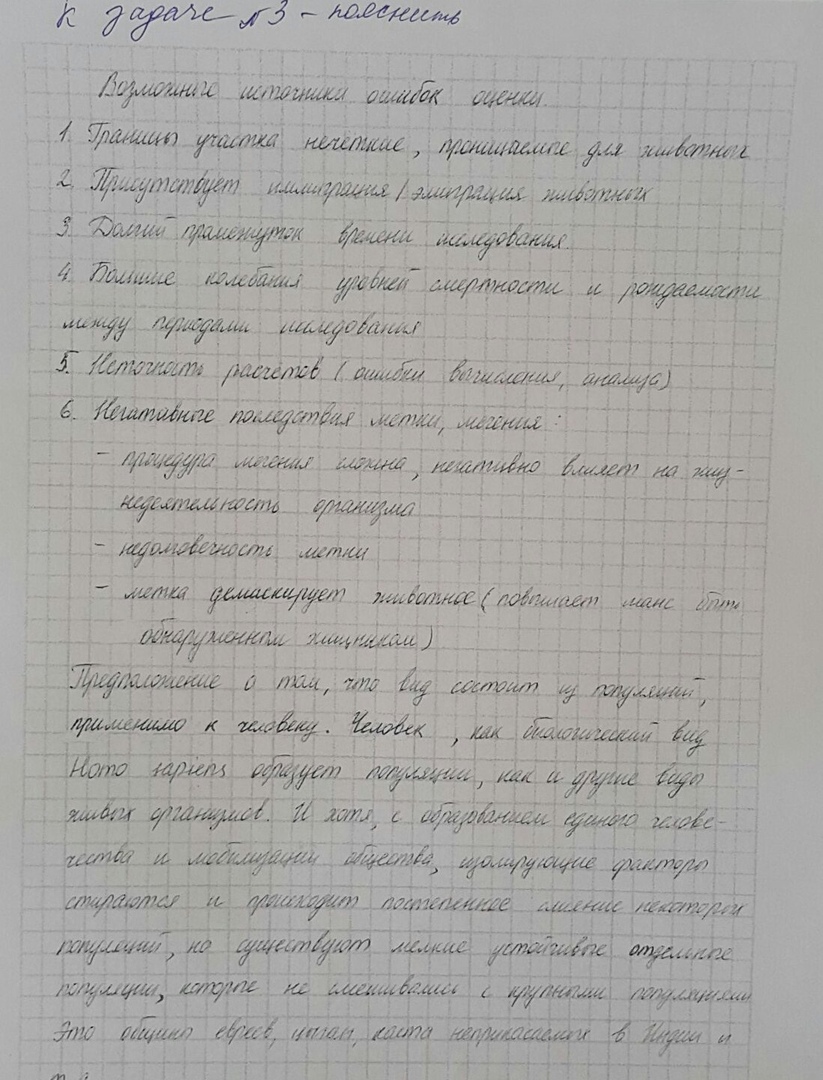 К задаче №3 - пояснить
Возможные источники ошибок оценки.
1. Границы участка нечеткие, проницаемые для животных
2. Присутствует иммиграция / эмиграция животных
3. Долгий промежуток времени исследования.
4. Большие колебания уровней смертности и рождаемости
между периодами исследования
5. Неточность расчетов (ошибки вычисления, анализа)
6. Негативные последствия метки, мечения:
- процедура мечения сложна, негативно влияет на жиз-
недеятельность организма
- недолговечность метки
- метка демаскирует животное (повышает шанс быть
обнаруженным хищником)
Предположение о том, что вид состоит из популяций,
применимо к человеку. Человек, как биологический вид
Homo sapiens образует популяции, как и другие виды
живых организмов. И хотя, с образованием единого челове-
чества и мобилизации общества, изолирующие факторы
стираются и происходит постепенное слияние некоторых
популяций, но существуют мелкие устойчивые отдельные
популяции, которые не смешивались с крупными популяциями
Это общины евреев, цыган, каста неприкасаемых в Индии и